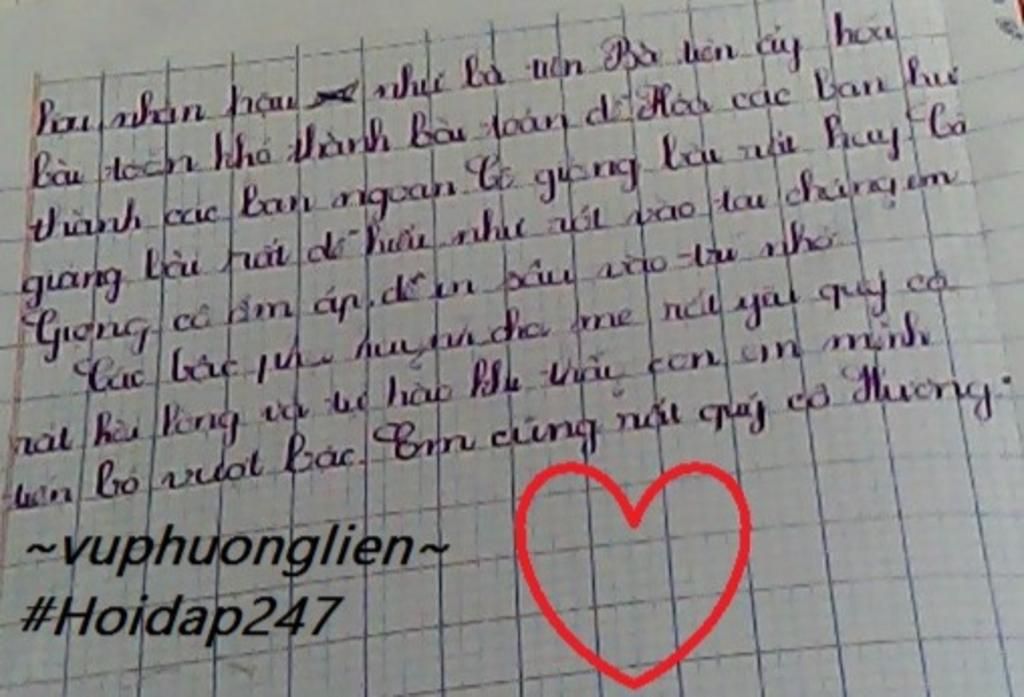 hậu như bà tiên Bà tiên ấy
bài toán khó thành bài toán dễ các bạn hư
thành các bạn ngoan Cô giảng bài rất hay Cô
giảng bài rất dễ hiểu như rót vào tai chúng em
Giọng cô ấm áp, dễ in sâu vào trí nhớ
Các bậc phụ huynh cha mẹ rất yêu quý cô
rất hài lòng và tự hào khi thấy con em mình
tiến bộ vượt bậc. Em cũng rất quý cô Hương.
~vuphuonglien~
#Hoidap247